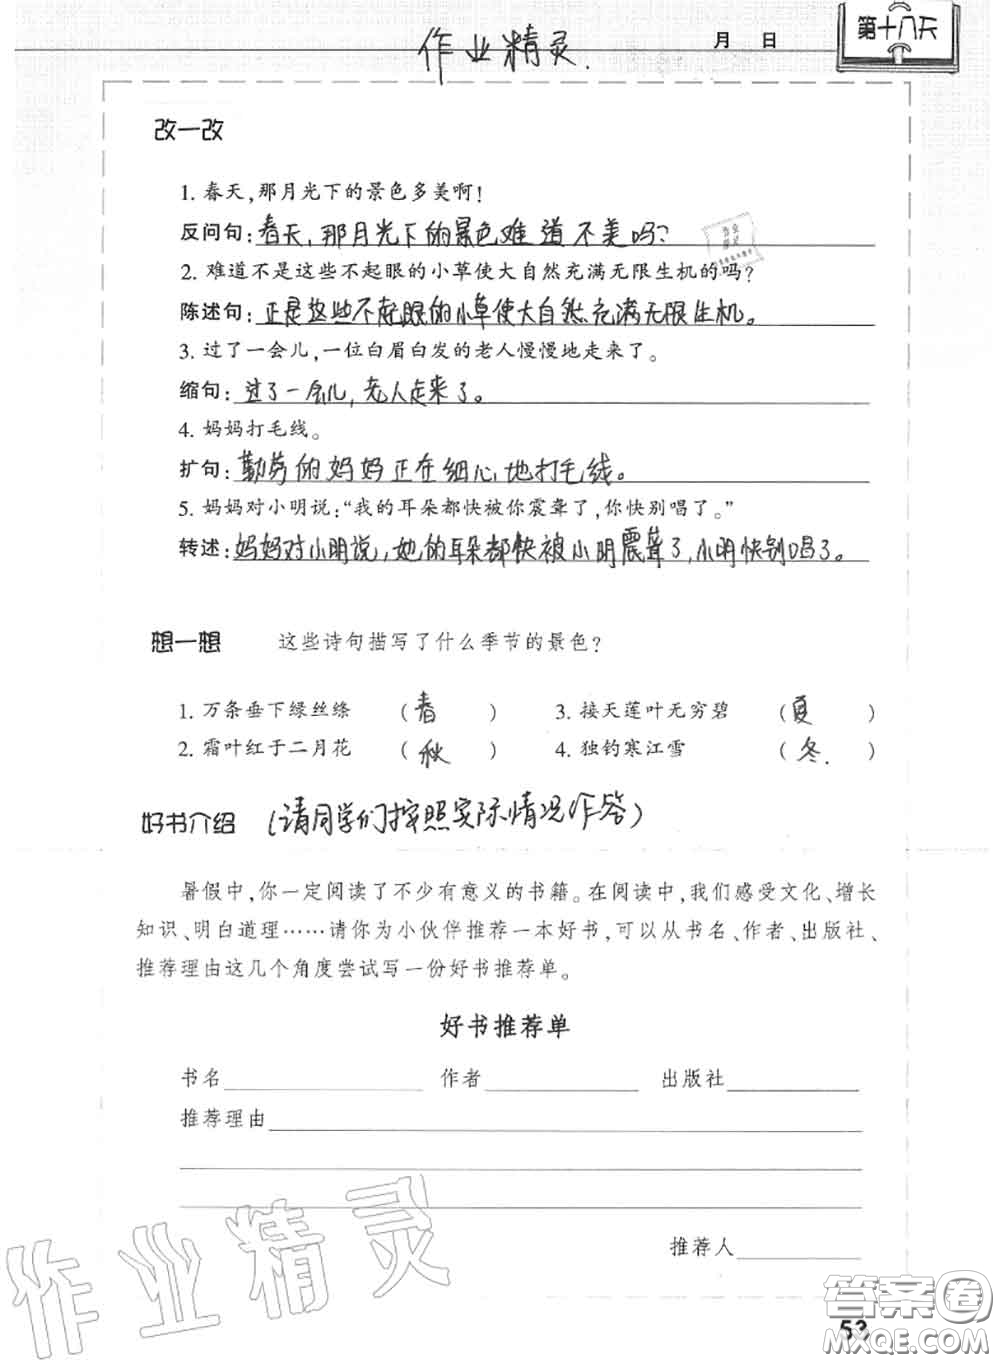 作业精灵.
月 日
第十八天
改一改
1. 春天,那月光下的景色多美啊!
反问句: 春天,那月光下的景色难道不美吗?
2. 难道不是这些不起眼的小草使大自然充满无限生机的吗?
陈述句: 正是这些不起眼的小草使大自然充满无限生机。
3. 过了一会儿,一位白眉白发的老人慢慢地走来了。
缩句: 过了一会儿,老人走来了。
4. 妈妈打毛线。
扩句: 勤劳的妈妈正在细心地打毛线。
5. 妈妈对小明说:“我的耳朵都快被你震聋了,你快别唱了。”
转述: 妈妈对小明说,她的耳朵都快被小明震聋了,小明快别唱了。
想一想 这些诗句描写了什么季节的景色?
1. 万条垂下绿丝绦 (春) 3. 接天莲叶无穷碧 (夏)
2. 霜叶红于二月花 (秋) 4. 独钓寒江雪 (冬.)
好书介绍 (请同学们按照实际情况作答)
暑假中,你一定阅读了不少有意义的书籍。在阅读中,我们感受文化、增长
知识、明白道理……请你为小伙伴推荐一本好书,可以从书名、作者、出版社、
推荐理由这几个角度尝试写一份好书推荐单。
好书推荐单
书名 作者 出版社
推荐理由
推荐人
作业精灵
答案圈
MXQE.COM
53